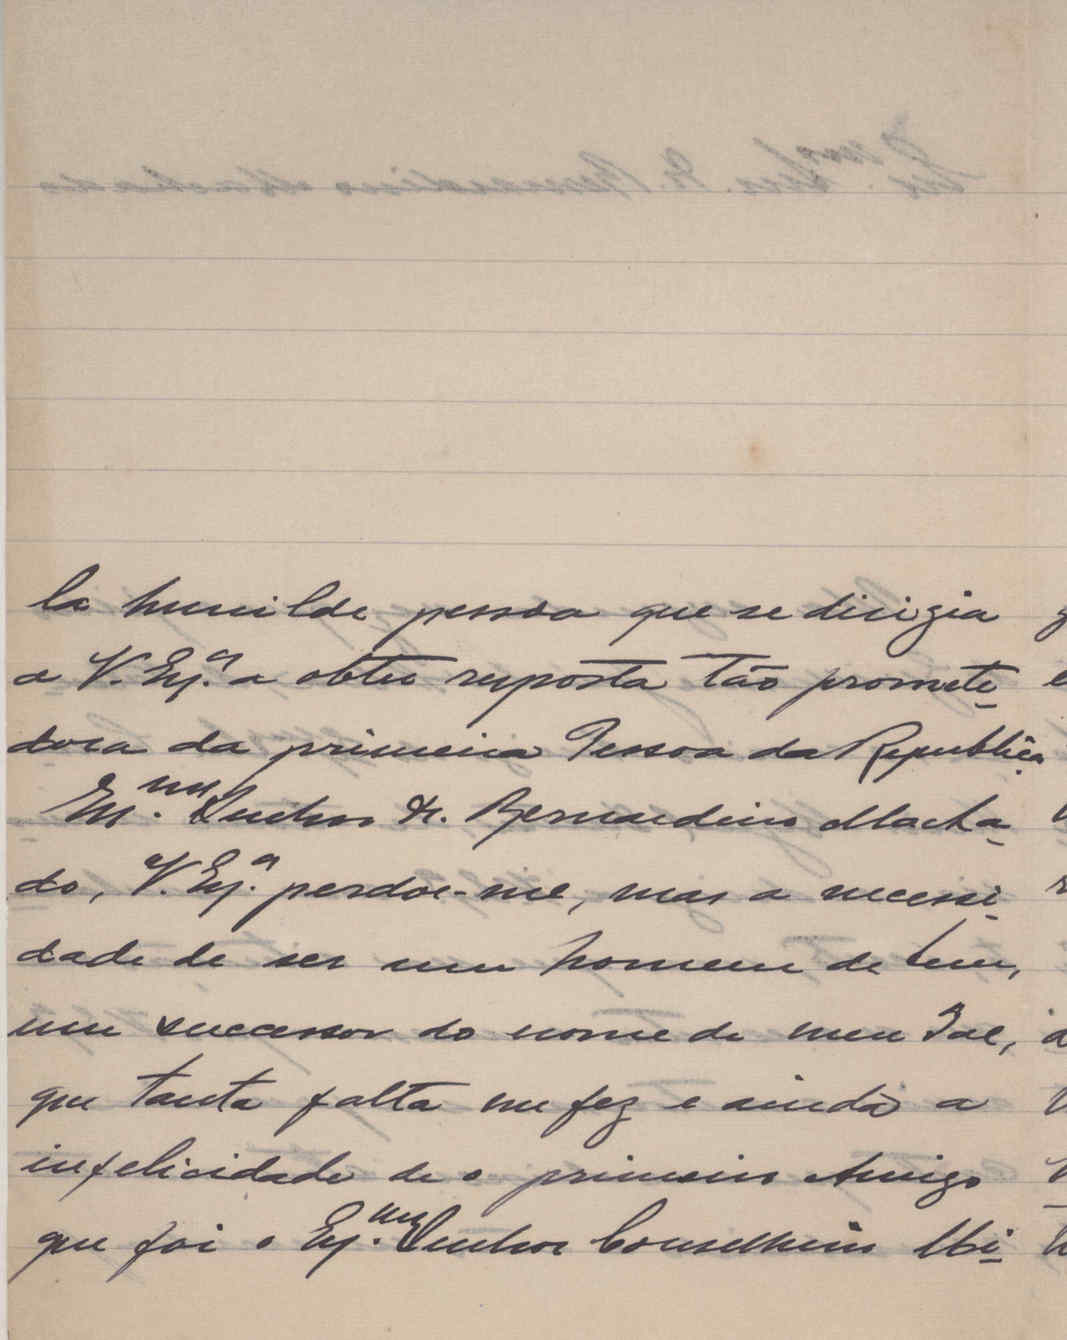 la humilde pessoa que se dirigia
a V. Ex.ª a obter resposta tão promete-
dora da primeira Pessoa da Republica
Ex.mo Senhor Dr. Bernardino Macha-
do, V. Ex.ª perdoe-me, mas a necessi-
dade de ser um homem de bem,
um successor do nome de meu Pae,
que tanta falta me fez e ainda a
infelicidade de o primeiro Amigo
que foi o Ex.mo Senhor Conselheiro Mi-